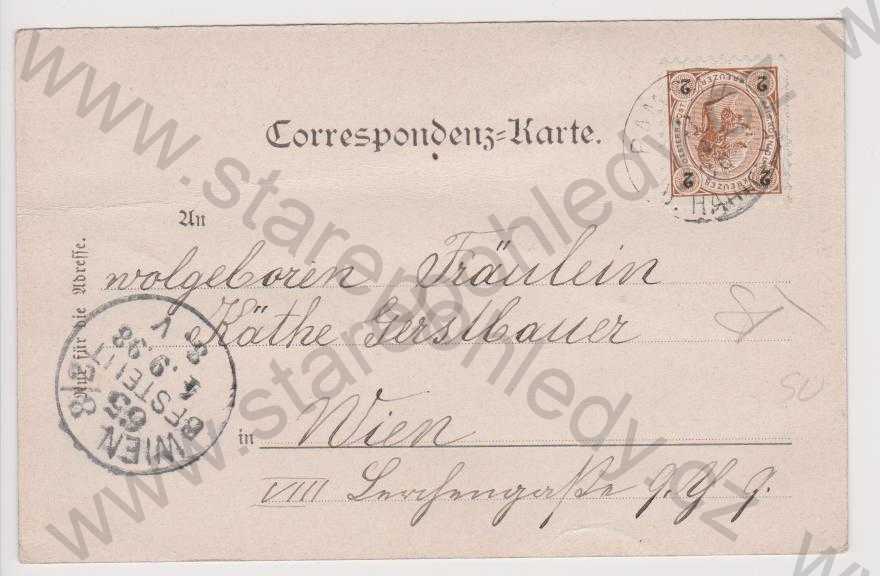 Correspondenz-Karte.
An
wolgeboren Fräulein
Käthe Gerstbauer
in Wien
VIII Lerchengaße
Nur für die Adresse.
WIEN 8/3
65
BESTELLT
4.9.98
8 V
2 2
2 2
KREUZER
su
www.starepohledy.cz